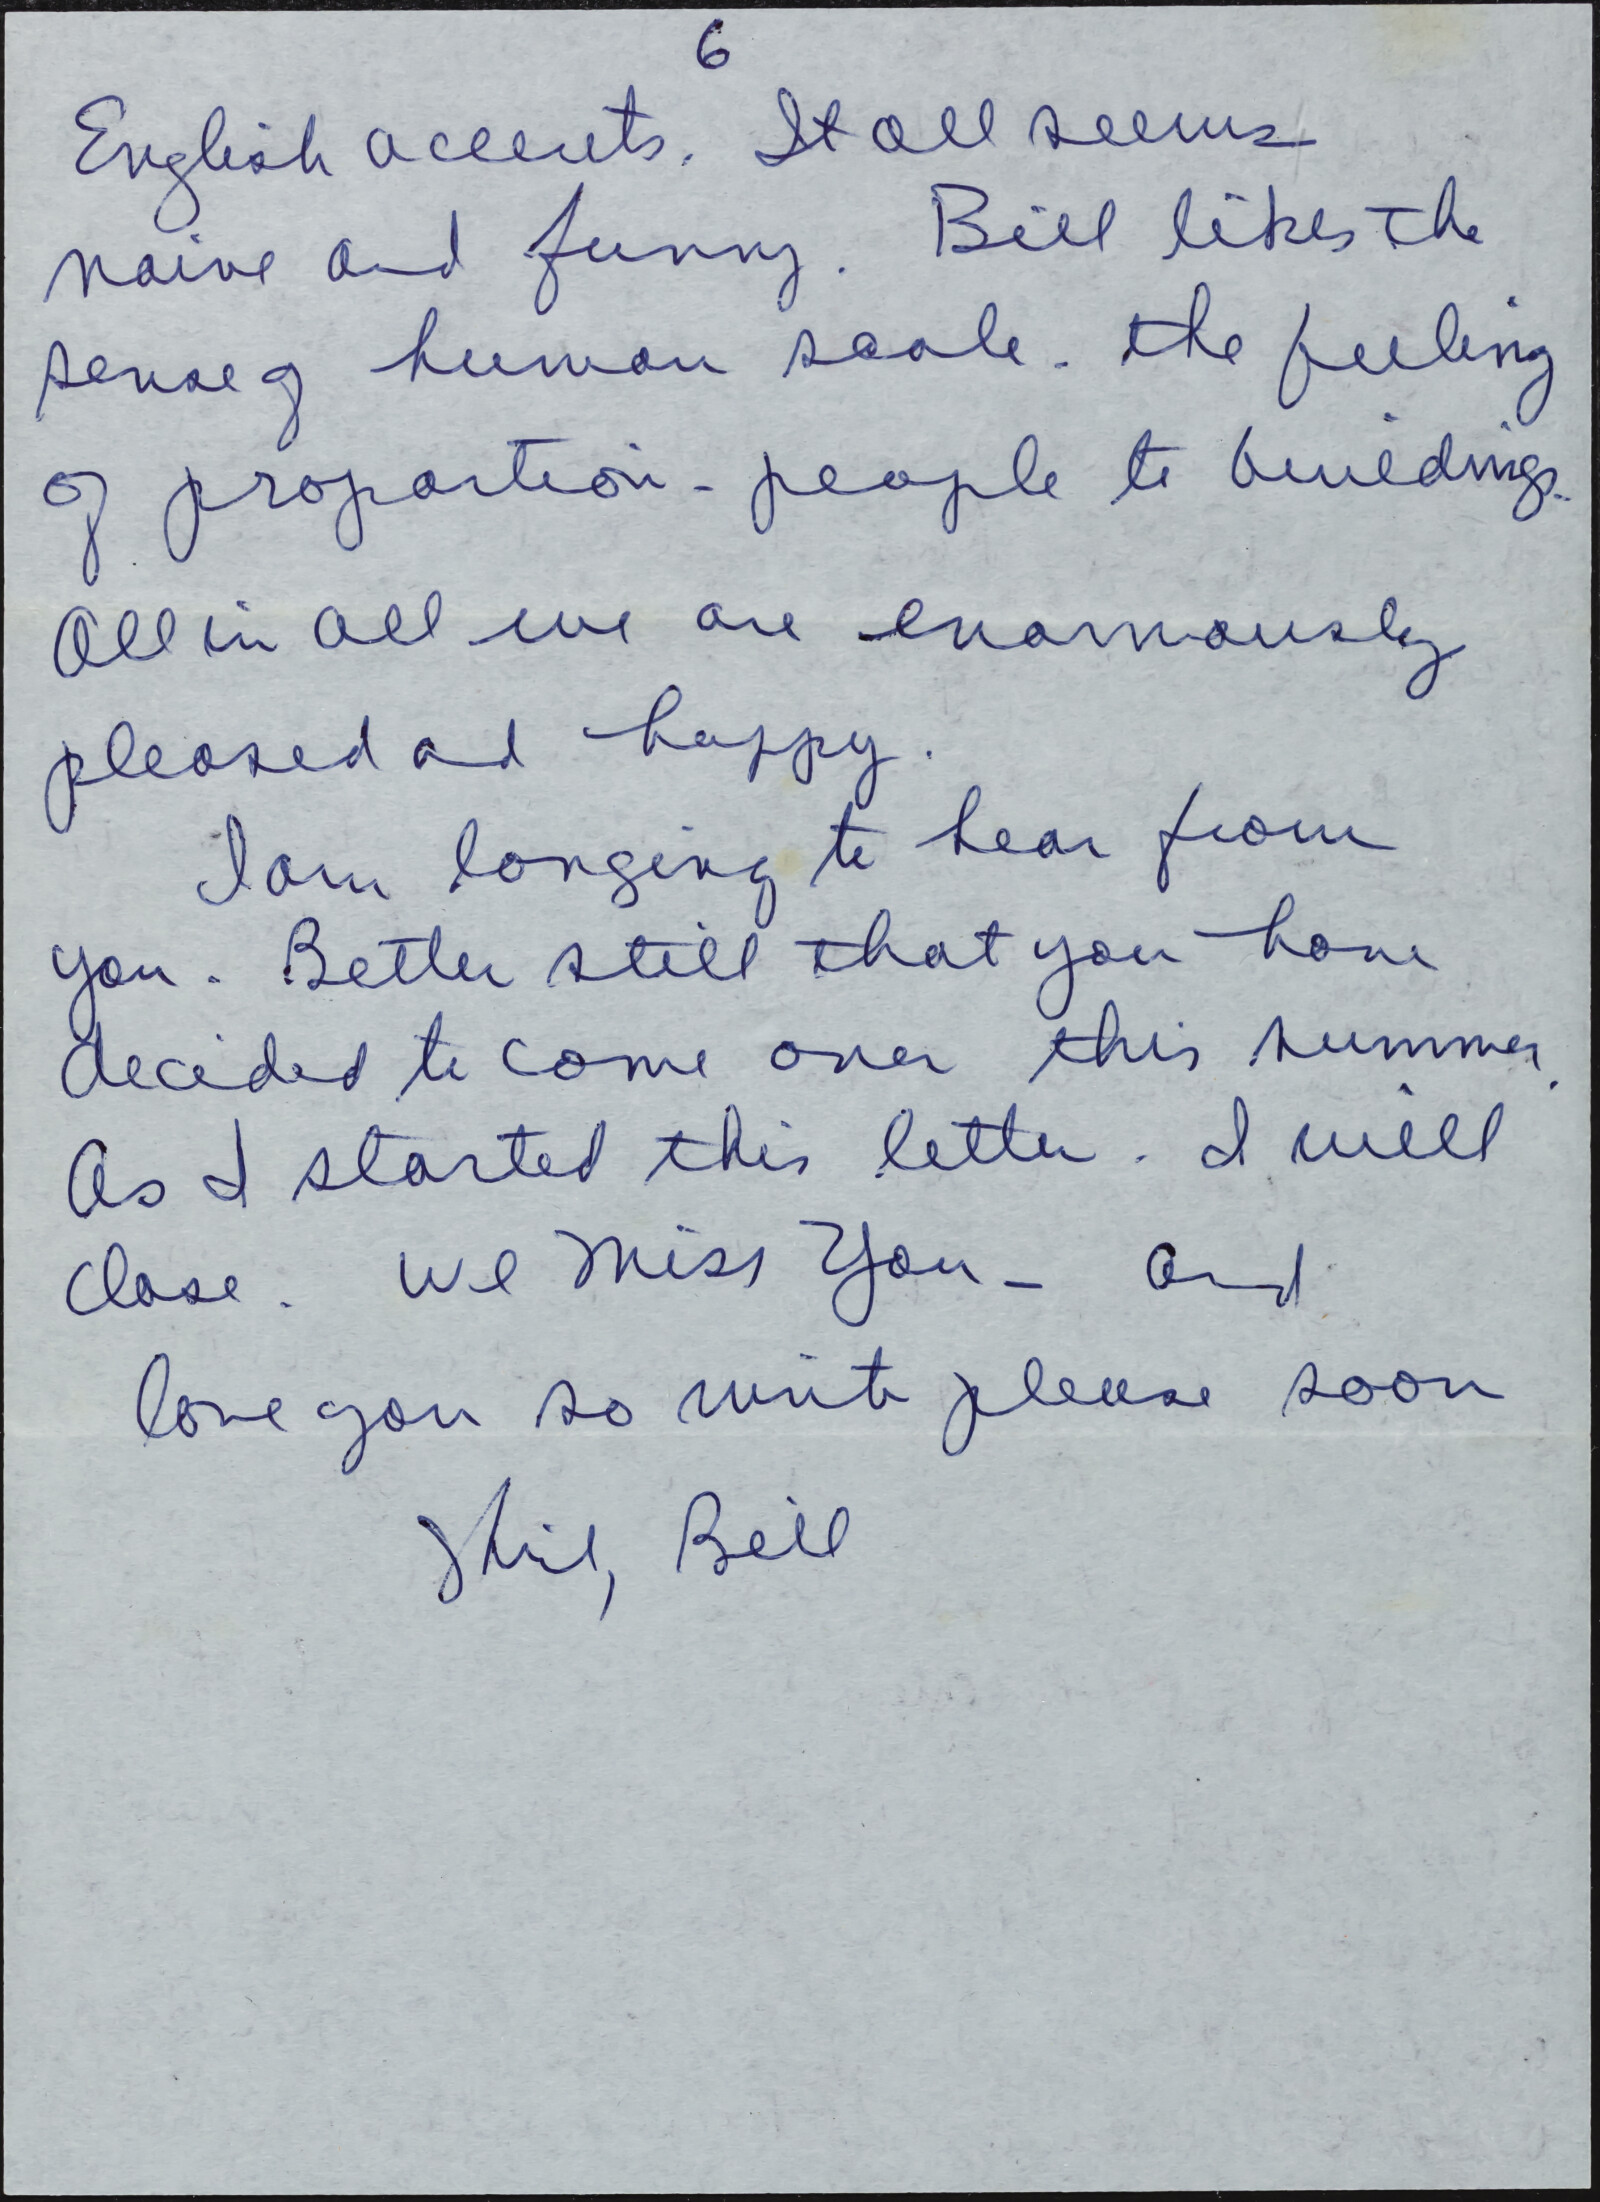 6
English accents. It all seems
naive and funny. Bill likes the
sense of human scale - the feeling
of proportion - people to buildings.
All in all we are enormously
pleased and happy.
I am longing to hear from
you. Better still that you have
decided to come over this summer.
As I started this letter - I will
close. We Miss You - and
love you so write please soon
Bill